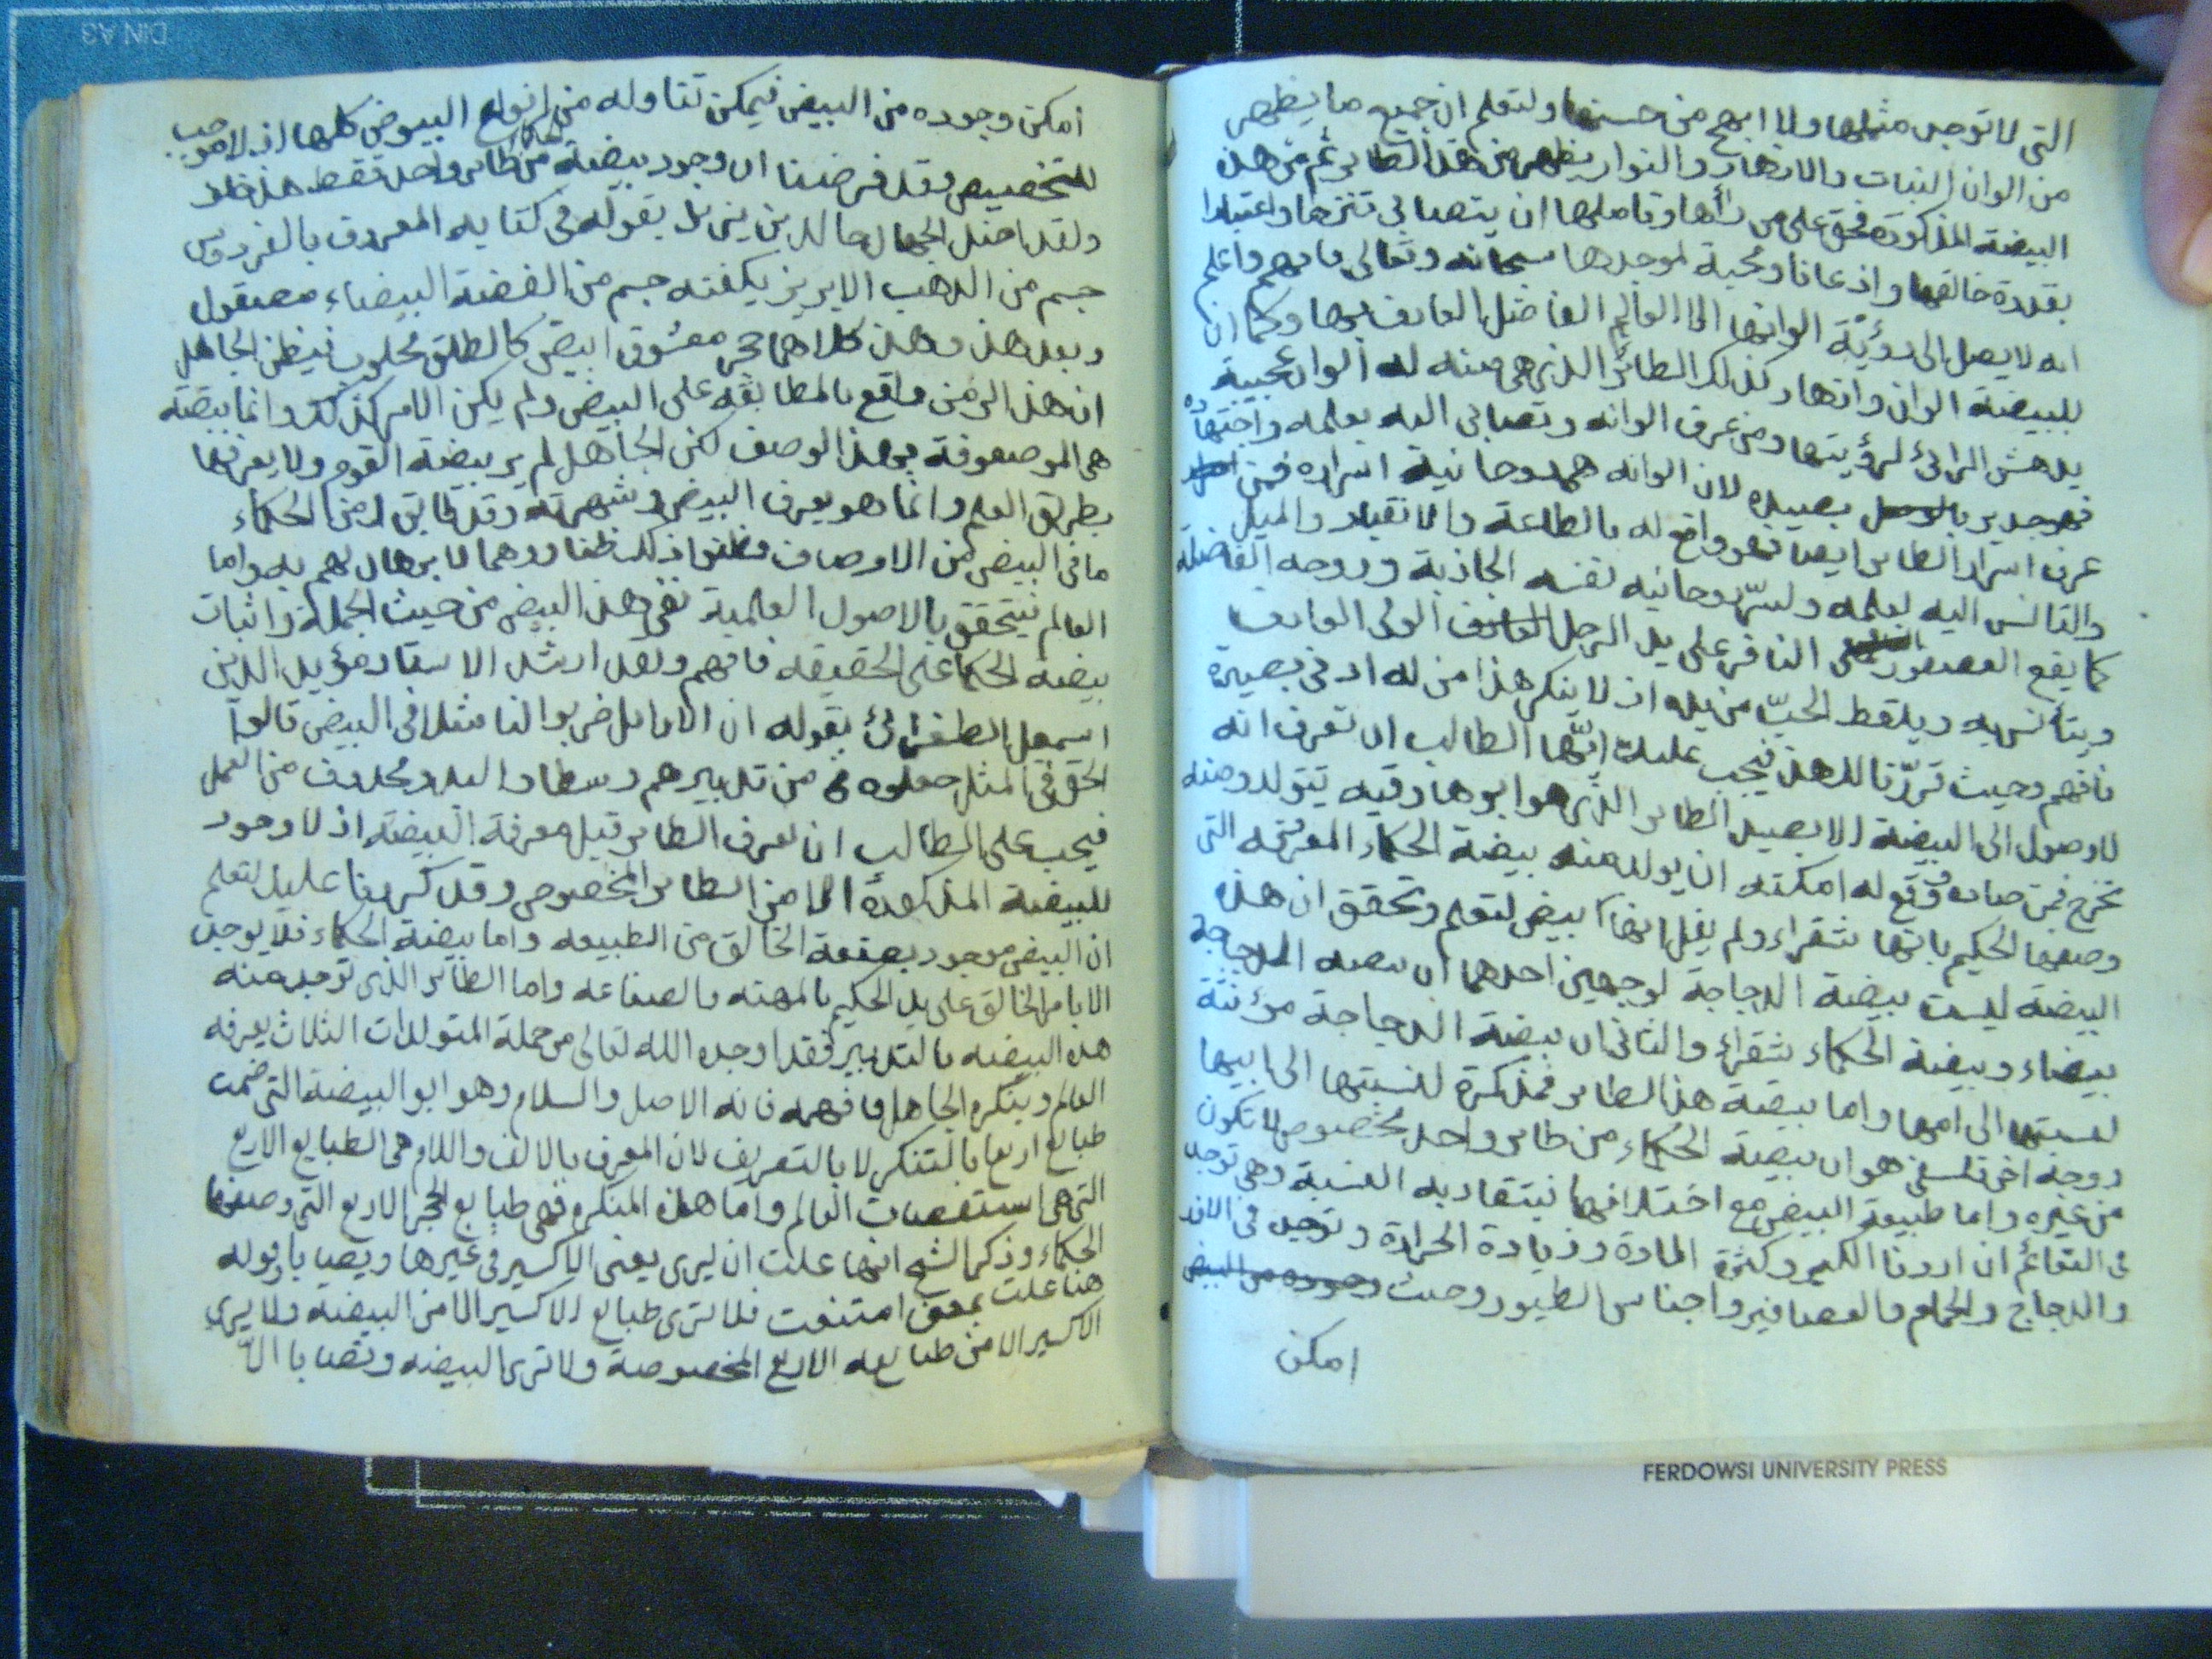 التى لا توجد مثلها ولا ابهج من حسنها ولتعلم ان جميع ما يظهر
من الوان النبات والازهار والنوار يظهر من هذا الطائر ثم من هذه
البيضة المذكورة فحق على من رأها وتاملها ان يتصابى تنزها واعتبارا
بقدرة خالقها واذعانا ومحبة لموجدها سبحانه وتعالى فافهم واعلم
انه لا يصل الى رؤية الوانها الا العالم الفاضل العارف بها وكما ان
للبيضة الوان وازهار كذلك الطائر الذى هى منه له الوان عجيبة
يدهش الرائ لرؤيتها ومن عرف الوانه وتصابى اليه بعلمه واجتهاده
فهو جدير بصيده لان الوانه هى روحانية اسراره فمن
عرف اسرار الطائر ايضا فهو واقع له بالطاعة والانقياد والميل
والتانس اليه بعلمه ولسر روحانيه نفسه الجاذبة وروحه الفاضلة
كما يقع العصفور النافر على يد الرجل الولى العارف
ويتأنس به ويلقط الحبّ من يده اذ لا ينكر هذا من له ادنى بصيرة
فافهم وحيث قرّرنا لك هذا فيجب عليك ايّها الطالب ان تعرف انه
لا وصول الى البيضة الا بصيد الطائر الذى هو ابوها وفيه تتولد ومنه
تخرج فمن صاده امكنه ان يولد منه بيضة الحكماء التى
وصفها الحكيم بانها شقراء ولم يقل انها ابيض لتعلم وتحقق ان هذه
البيضة ليست بيضة الدجاجة لوجهين احدهما ان بيضه الدجاجة
بيضاء وبيضة الحكماء شقراء والثانى ان بيضة الدجاجة مؤنثة
لنسبتها الى امها واما بيضة هذا الطائر فمذكرة لنسبتها الى ابيها
ووجه اخر فلسفى هو ان بيضة الحكماء من طائر واحد مخصوص لا تكون
من غيره واما طبيعة البيض مع اختلافها فيتقاربه النسبة وهى توجد
فى النعائم ان اردنا الكبير وكثرة المادة وزيادة الحرارة وتوجد فى
والدجاج والحمام والعصافير واجناس الطيور وحيث وجوده من البيض
امكن
امكن وجوده من البيض فيمكن تناوله من انواع البيوض كلها اذ لا موجب
للتخصيص وقد فرضنا ان وجود بيضة من طائر واحد فقط هذا خلف
ولقد اضل الجهال خالد بن يزيد بقوله فى كتابه المعروف بالفردوس
جسم من الذهب الابريز يكفته جسم من الفضة البيضاء مصقول
وبعد هذا وهذا كلاهما حجر معشوق ابيض كالطلق محلوب فيظن الجاهل
ان هذا الرمز واقع بالمطابقه على البيض ولم يكن الامر كذلك وانما بيضته
هى الموصوفة بهذا الوصف لكن الجاهل لم ير بيضة القوم ولا يعرفها
بطريق العلم وانما هو يعرف البيض وشهرته وقد طابق رمز الحكماء
ما فى البيض من الاوصاف فظنوا ذلك ظنا ووهما لا برهان لهم به واما
العالم فيتحقق بالاصول العلمية نفى هذا البيض من حيث الجملة واثبات
بيضة الحكما على الحقيقه فافهم ولقد ارشد الاستاد مؤيد الدين
اسمعيل الطغرائى بقوله ان الاوائل ضربوا لنا مثلا فى البيض قالوا
الحق فى المثل جعلوه من تدبيرهم وسطا والبدو محذوف من العمل
فيجب على الطالب ان يعرف الطائر قبل معرفة البيضة اذ لا وجود
للبيضة المذكورة الا من الطائر المخصوص وقد كررنا عليك لتعلم
ان البيض موجود بصنعة الخالق من الطبيعه واما بيضة الحكماء فلا يوجد
الا بامر الخالق على يد الحكيم بالمهنه والصناعه واما الطائر الذى توجد منه
هذه البيضه بالتدبير فقد اوجده الله تعالى من جملة المتولدات الثلاث يعرفه
العالم وينكره الجاهل فافهمه فانه الاصل والسلام وهو ابو البيضة التى ضمت
طبائع اربعا بالتنكر لا بالتعريف لان المعرف بالالف واللام هى الطبايع الاربع
التى هى استقصات العالم واما هذه المنكره فهى طبايع الحجر الاربع التى وصفها
الحكماء وذكر الشيخ انها علت ان ليرى يعنى الاكسير فى غيرها ويصابا وقوله
هنا علت بمعنى امتنعت فلا ترى طبائع الاكسير الا من البيضة ولا يرى
الاكسير الا من طبائعه الاربع المخصوصة ولا ترى البيضه وتصابا الا
FERDOWSI UNIVERSITY PRESS
DIN A3